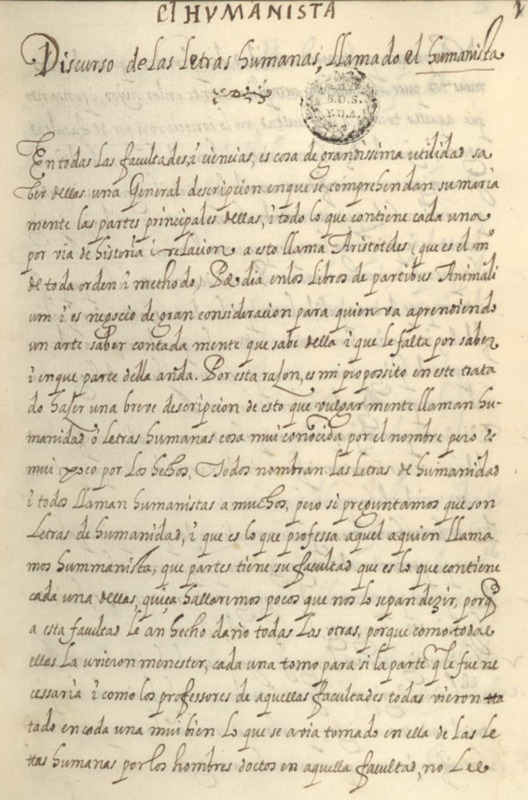 El HVMANISTA
1
Discurso de las letras humanas, llamado el humanista
B.D.S.
Y.D.A.
En todas las facultades, i ciencias, es cosa de grandissima utilidad sa
ber dellas una General descripcion en que se comprehendan sumaria
mente las partes principales dellas, i todo lo que contiene cada una
por via de historia i relacion a esto llama Aristoteles (que es el mº
de toda orden i methodo) Pædia en los Libros de partibus Animali
um i es negocio de gran consideracion para quien va aprendiendo
un arte saber contada mente que sabe della i que le falta por saber
i en que parte della anda. Por esta rason, es mi proposito en este trata
do haser una breve descripcion de esto que vulgar mente llaman hu-
manidad ô letras humanas cosa mui conocida por el nombre pero es
mui poco por los hechos, Todos nombran las letras de humanidad
i todos llaman humanistas a muchos, pero si preguntamos que son
Letras de humanidad, i que es lo que professa aquel a quien llama
mos hummanista, que partes tiene su facultad que es lo que contiene
cada una dellas, quiça hallaremos pocos que nos lo sepan dezir, porq̃
a esta facultad le an hecho daño todas las otras, porque como todas
ellas la uvieron menester, cada una tomo para si la parte q̃ le fue ne
cessaria i como los professores de aquellas facultades todas vieron tra
tado en cada una mui bien lo que se avia tomado en ella de las le
tras humanas por los hombres doctos en aquella facultad, no